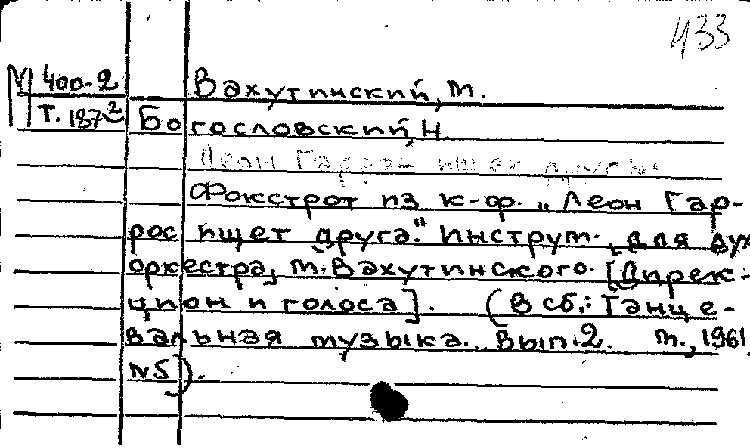 433
М 400-2
Т. 187²
Вахутинский, М.
Богословский, Н.
Леон Гаррос ищет друга.
Фокстрот из к-ф. „Леон Гар-
рос ищет друга." Инструм. для дух.
оркестра, М. Вахутинского. [Дирек-
цион и голоса]. (В сб.: Танце-
вальная музыка. Вып. 2. М., 1961,
№5).